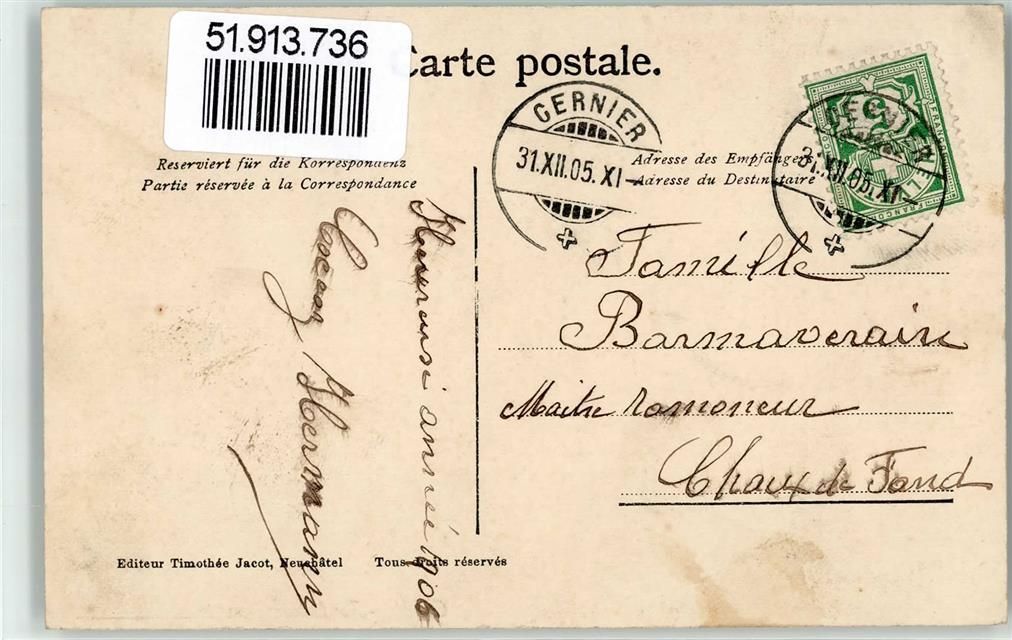 51.913.736
Carte postale.
Reserviert für die Korrespondenz
Partie réservée à la Correspondance
Adresse des Empfängers
Adresse du Destinataire
CERNIER
31.XII.05.XI-
CERNIER
31.XII.05.XI-
5
FRANCO
HELVETIA
Famille
Barmaverain
Maitre ramoneur
Chaux de Fond
Heureuse année 1906
Hermann
Editeur Timothée Jacot, Neuchâtel Tous droits réservés